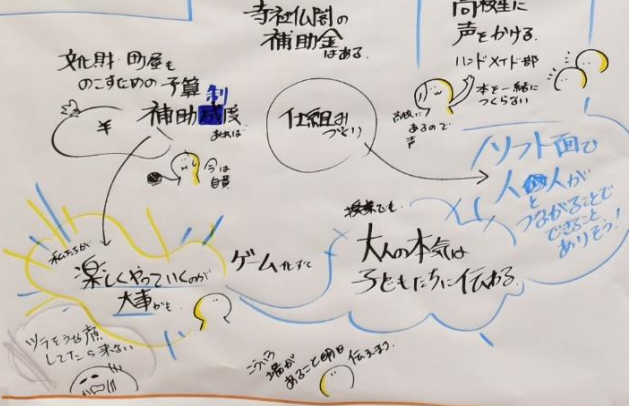 寺社仏閣の
補助金
はある。
高校生に
声をかける。
ハンドメイド部
本を一緒に
つくらない
文化財・町屋も
のこすための予算
補助制度
あれば
¥
今は
自費
仕組み
づくり
あるので
声
ソフト面で
人と人が
つながることで
できること
ありそう!
私たちが
楽しくやっていくのが
大事かと
ゲーム化すて
授業でも
大人の本気は
子どもたちに伝わる。
してたら来ない
こういう
場が
あること明日
伝えます。